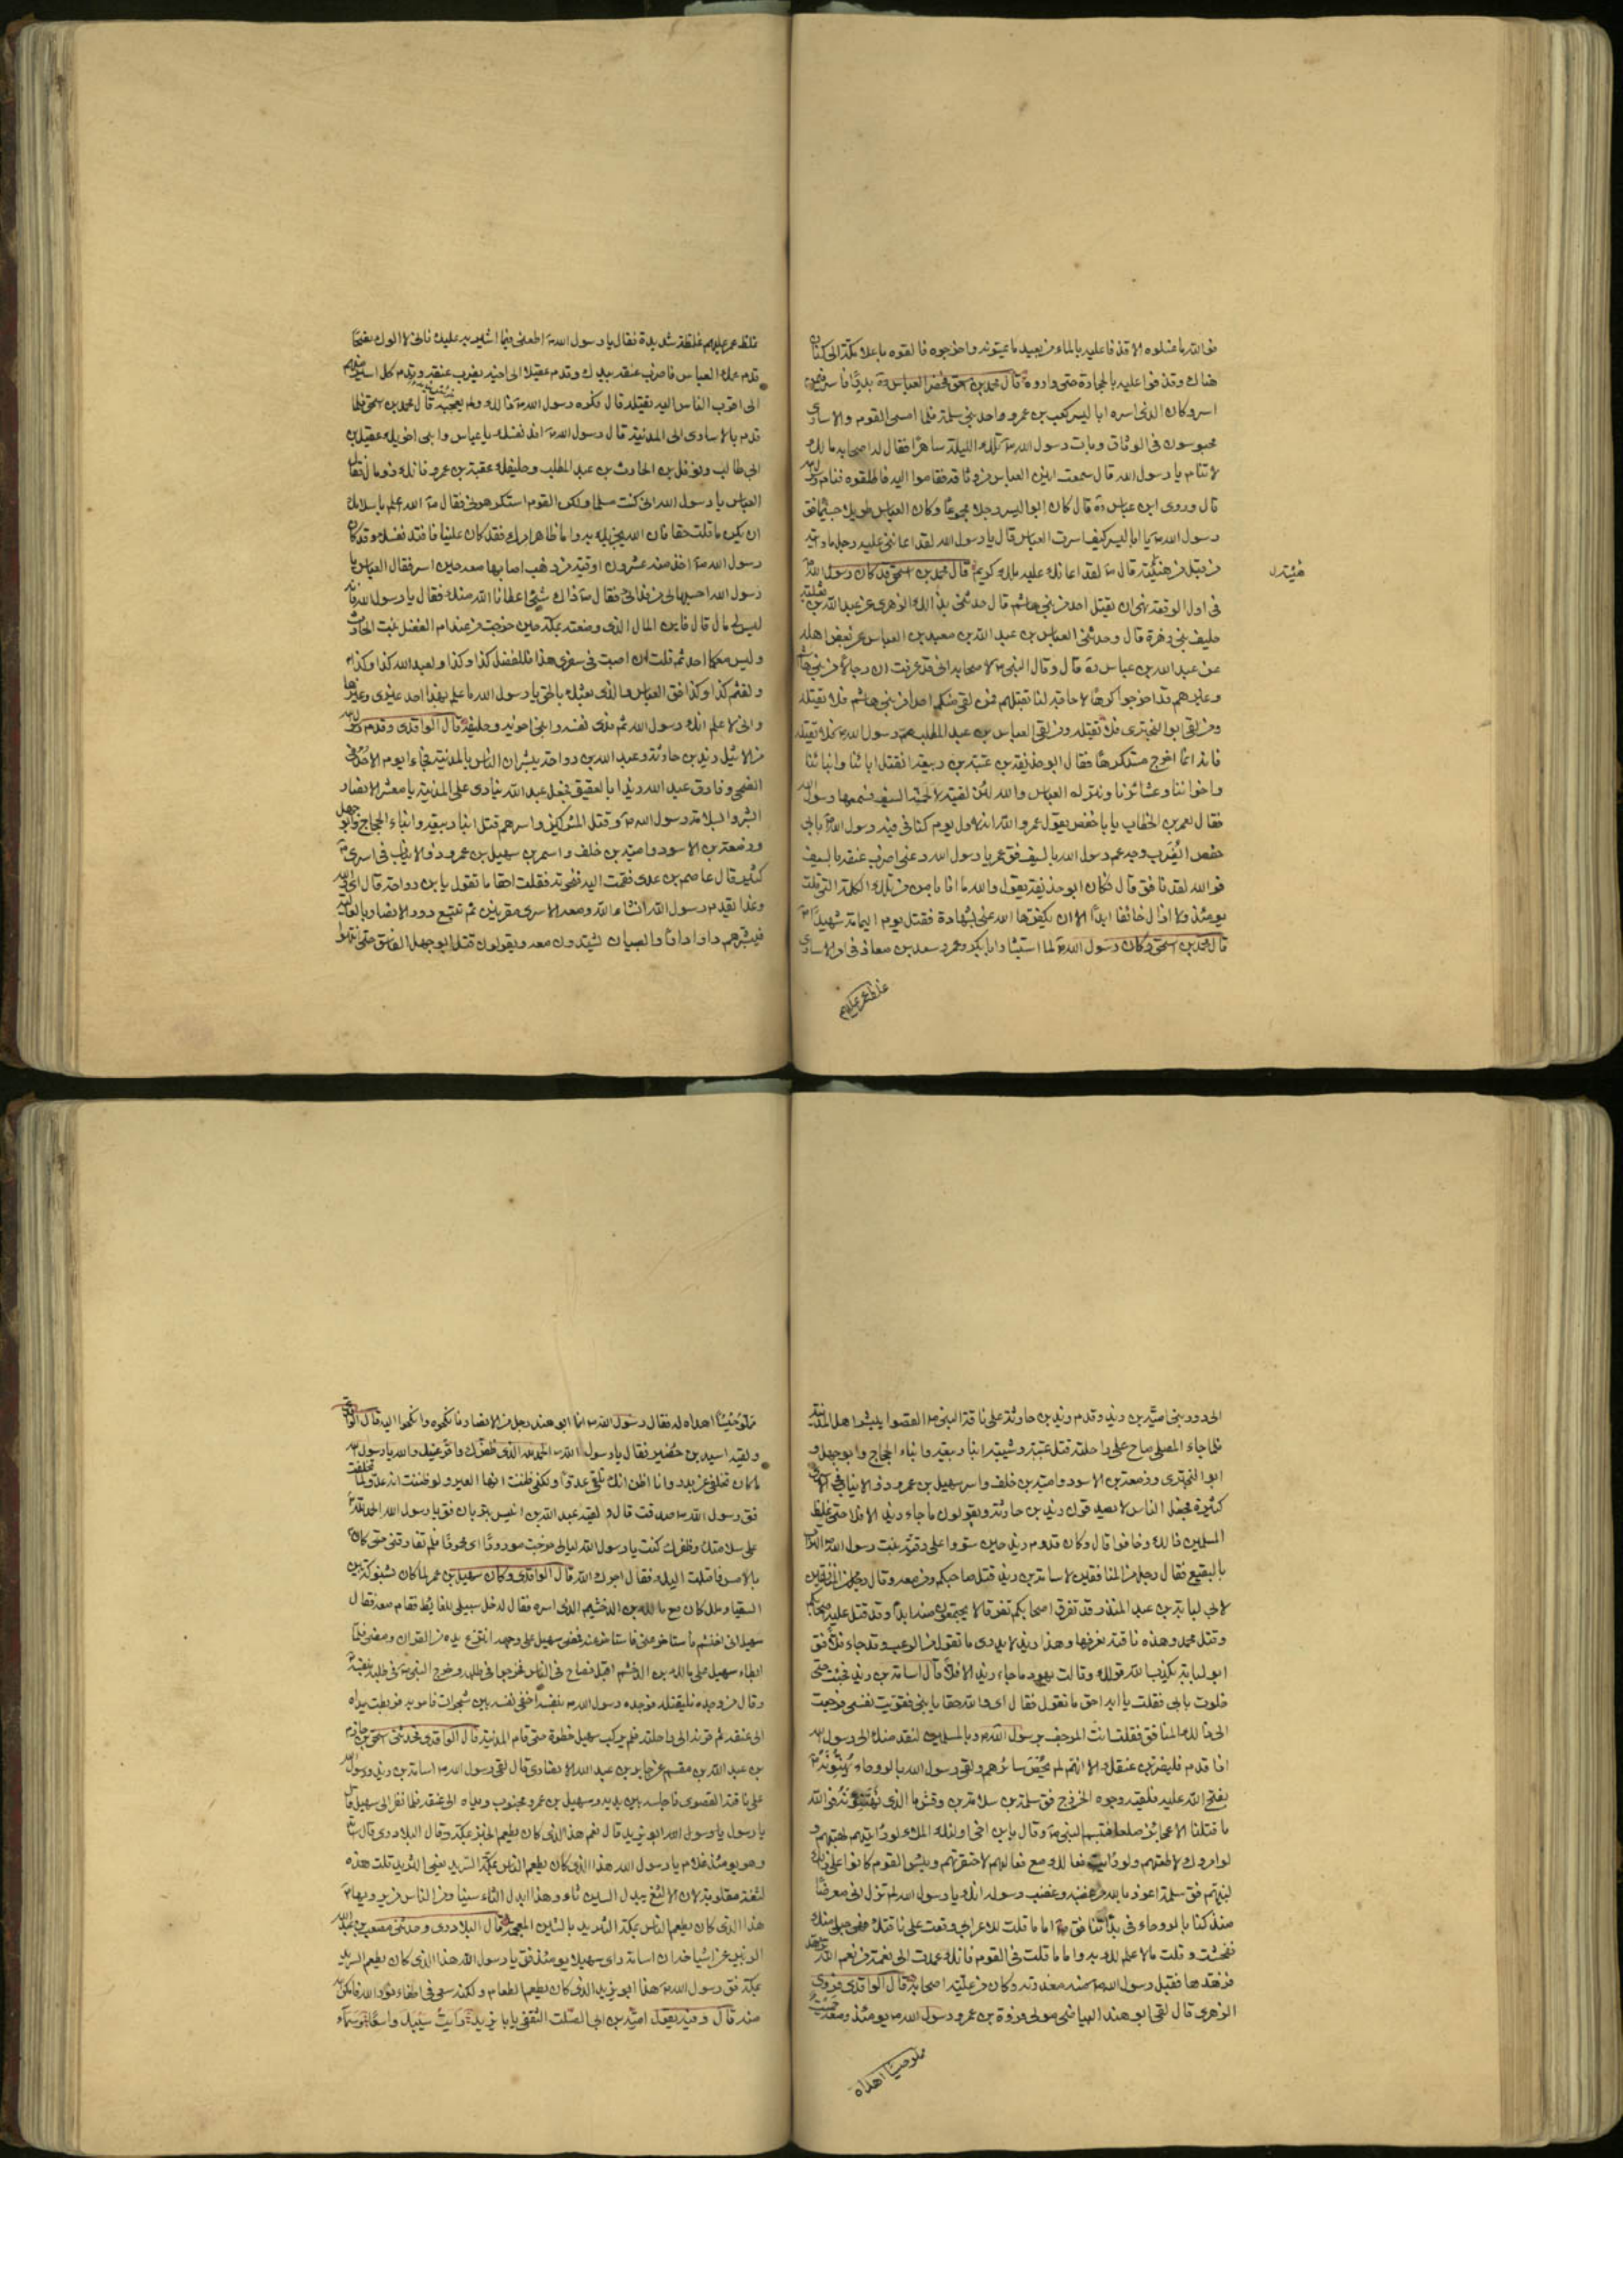 فوالله ما غسلوه الا قذفا عليه بالماء من بعيد ما يمسونه واخرجوه فالقوه باعلا مكة الى كنان
هناك وقذفوا عليه بالحجارة حتى واروه قال محمد بن اسحق فحضر العباس رة بدرًا فاسر فيمن
اسر وكان الذى اسره ابا اليسر كعب بن عمرو واحد بنى سلمة فلما امسى القوم والاسارى
محبوسون فى الوثاق وبات رسول الله ص تلك الليلة ساهرًا فقال له اصحابه مالك
لا تنام يا رسول الله قال سمعت انين العباس من وثاقه فقاموا اليه فاطلقوه فنام رسول الله
قال وروى ابن عباس رة قال كان ابو اليسر رجلا مجموعًا وكان العباس طويلا جسيمًا فق
رسول الله ص يا ابا اليسر كيف اسرت العباس قال يا رسول الله لقد اعاننى عليه رجل ما رايته
من قبل من هيئته قال ص لقد اعانك عليه ملك كريم قال محمد بن اسحق قد كان رسول الله
هيئته
فى اول الوقعة نهى ان يقتل احد من بنى هاشم قال حدثنى بذلك الزهرى عن عبد الله بن ثعلبة
حليف بنى زهرة قال وحدثنى العباس بن عبد الله بن معبد بن العباس عن بعض اهله
عن عبد الله بن عباس رة قال وقال النبى ص لاصحابه انى قد عرفت ان رجالا من بنى هاشم
وغيرهم قد اخرجوا كرهًا لا حاجة لنا بقتلهم فمن لقى منكم احدا من بنى هاشم فلا يقتله
ومن لقى ابو البخترى فلا يقتله ومن لقى العباس بن عبد المطلب عم رسول الله ص فلا يقتله
فانه انما اخرج مستكرهًا فقال ابو حذيفة بن عتبة بن ربيعة انقتل اباءنا وابناءنا
واخواننا وعشائرنا ونترك العباس والله لئن لقيته لالحمنه السيف فسمعها رسول الله
فقال لعمر بن الخطاب يا با حفص يقول عمر والله انه لاول يوم كنانى فيه رسول الله بابى
حفص ايُضرب وجه عم رسول الله بالسيف فق عمر يا رسول الله دعنى اضرب عنقه بالسيف
فوالله لقد نافق قال فكان ابو حذيفة يقول والله ما انا بامن من تلك الكلمة التى قلت
يومئذ ولا ازال خائفا ابدًا الا ان يكفرها الله عنى بشهادة فقتل يوم اليمامة شهيدًا
قال محمد بن اسحق وكان رسول الله لما استشار ابا بكر وعمر وسعد بن معاذ فى امر الاسارى
غلظ عمر عليهم
غلظ عمر عليهم غلظة شديدة فقال يا رسول الله اطعنى فيما اشير به عليك فانى لا الوك نصحًا
قدم عمك العباس فاضرب عنقه بيدك وقدم عقيلا الى اخيه يضرب عنقه وقدم كل اسير منهم
الى اقرب الناس اليه يقتله قال فكره رسول الله ص ذلك ولم يعجبه قال محمد بن اسحق فلما
قدم بالاسارى الى المدينة قال رسول الله ص افد نفسك يا عباس وابنى اخويك عقيل بن
ابى طالب ونوفل بن الحارث بن عبد المطلب وحليفك عقبة بن عمرو فانك ذو مال فقال
العباس يا رسول الله انى كنت مسلما ولكن القوم استكرهونى فقال ص الله اعلم باسلامك
ان يكن ما قلت حقا فان الله يجزيك به واما ظاهر امرك فقد كان علينا فافتد نفسك وقد كان
رسول الله ص اخذ منه عشرون اوقية من ذهب اصابها معه حين اسر فقال العباس يا
رسول الله احسبها لى من فدائى فقال ص ذاك شئ اعطانا الله منك فقال يا رسول الله فانه
ليس لى مال قال فاين المال الذى وضعته بمكة حين خرجت عند ام الفضل بنت الحارث
وليس معكما احد ثم قلت ان اصبت فى سفرى هذا فللفضل كذا وكذا ولعبد الله كذا وكذا
ولقثم كذا وكذا فق العباس والذى بعثك بالحق يا رسول الله ما علم بهذا احد غيرى وغيرها
وانى لا علم انك رسول الله ثم فدى نفسه وابنى اخويه وحليفه قال الواقدى وقدم رسول الله
من الاثيل زيد بن حارثة وعبد الله بن رواحة يبشران الناس بالمدينة فجاءا يوم الاحد فى
الضحى وفارق عبد الله زيدا بالعقيق فجعل عبد الله ينادى على المدينة يا معشر الانصار
ابشروا بسلامة رسول الله وقتل المشركين واسرهم قتل ابنا ربيعة وابناء الحجاج وابو جهل
وزمعة بن الاسود وامية بن خلف واسر سهيل بن عمرو ذو الانياب فى اسرى
كثيرة قال عاصم بن عدى فقمت اليه فنحوته فقلت احقا ما تقول يا بن رواحة قال اى والله
وغدا يقدم رسول الله انشاء الله ومعه الاسرى مقرنين ثم تتبع دور الانصار بالعالية
فبشرهم دارا دارًا والصبيان يشتدون معه ويقولون قتل ابو جهل الفاسق حتى انتهوا
الى دور بنى امية بن زيد وقدم زيد بن حارثة على ناقة النبى ص القصوا يبشر اهل المدينة
فلما جاء المصلى صاح على راحلته قتل عتبة وشيبة ابنا ربيعة وابناء الحجاج وابو جهل و
ابو البخترى وزمعة بن الاسود وامية بن خلف واسر سهيل بن عمرو ذو الانياب فى اسرى
كثيرة فجعل الناس لا يصدقون زيد بن حارثة ويقولون ما جاء زيد الا فلا حتى غلظ
المسلمين ذلك وخافوا قال وكان قدوم زيد حين سووا على رقية بنت رسول الله ص التراب
بالبقيع فقال رجل من المنافقين لاسامة بن زيد قتل صاحبكم ومن معه وقال رجل من المنافقين
لابى لبابة بن عبد المنذر قد تفرق اصحابكم تفرقا لا يجتمعون منه ابدًا وقد قتل عليه اصحابكم
وقتل محمد وهذه ناقته نعرفها وهذا زيد لا يدرى ما تقول من الرعب وقد جاء فلا فق
ابو لبابة يكذب الله قولك وقالت يهود ما جاء زيد الا فلا قال اسامة بن زيد فجئت حتى
خلوت بابى فقلت يا ابه احق ما تقول فقال اى والله حقا يا بنى فقويت نفسى فرجعت
الى ذلك المنافق فقلت انت المرجف برسول الله وبالمسلمين لنقدمنك الى رسول الله
اذا قدم فليضربن عنقك
بفتح الله عليه فلقيته وجوه الخزرج فق سلمة بن سلامة بن وقش ما الذى تهنئونه فوالله
ما قتلنا الا عجائز صلعا فتبسم النبى ص وقال يا بن اخى اولئك الملا لو رايتهم لهبتهم و
لو امروك لاطعتهم ولو رايت فعالك مع فعالهم لاحتقرتهم وبئس القوم كانوا على ذلك
لنبيهم فق سلمة اعوذ بالله من غضبه وغضب رسوله انك يا رسول الله لم تزل عنى معرضًا
منذ كنا بالروحاء فى بدأتنا فق ص اما ما قلت للاعرابى وقعت على ناقتك فهى حبلى منك
ففحشت وقلت ما لا علم لك به واما ما قلت فى القوم فانك عمدت الى نعمة من نعم الله
فزهدها فقبل رسول الله ص منه معذرته وكان من علية اصحابه قال الواقدى فروى
الزهرى قال لقى ابو هند البياضى مولى فروة بن عمرو رسول الله ص يومئذ ومعه حميت
مملو حيسًا اهداه
مملو حيسًا اهداه له فقال رسول الله ص انما ابو هند رجل من الانصار فانكحوه وانكحوا اليه قال الواقدى
ولقيه اسيد بن حضير فقال يا رسول الله الحمد لله الذى ظفرك واقر عينك والله يا رسول الله
ما كان تخلفى عن بدر وانا اظن انك تلقى عدوًا ولكنى ظننت انها العير ولو ظننت انه عدو لما تخلفت
فق رسول الله ص صدقت قال ولقيه عبد الله بن انيس بتربان فق يا رسول الله الحمد لله
على سلامتك وظفرك كنت يا رسول الله ليالى خرجت مورودًا اى محمومًا فلم تفارقنى حتى كان
بالامس فاقبلت اليك فقال اجرك الله قال الواقدى وكان سهيل بن عمر لما كان بشنوكة بين
السقيا وملل كان مع مالك بن الدخشم الذى اسره فقال له خل سبيلى للغائط فقام معه فقال
سهيل انى احتشم فاستاخر عنى فاستاخر عنه فمضى سهيل على وجهه انتزع يده من القران ومضى فلما
ابطاء سهيل على مالك بن الدخشم اقبل فصاح فى الناس فخرجوا فى طلبه وخرج النبى ص فى طلبه بنفسه
وقال من وجده فليقتله فوجده رسول الله ص بنفسه اخفى نفسه بين شجرات فامر به فربطت يداه
الى عنقه ثم قرنه الى راحلته فلم يركب سهيل خطوة حتى قدم المدينة قال الواقدى فحدثنى اسحق بن حازم
بن عبد الله بن مقسم عن جابر بن عبد الله الانصارى قال لقى رسول الله ص اسامة بن زيد ورسول الله
على ناقته القصوى فاجلسه بين يديه وسهيل بن عمرو مجنوب ويداه الى عنقه فلما نظر الى سهيل قال
يا رسول يا رسول الله ابو يزيد قال نعم هذا الذى كان يطعم الخبز بمكة وقال البلاذرى قال
وهو يومئذ غلام يا رسول الله هذا الذى كان يطعم الناس بمكة السريد يعنى الثريد قلت هذه
لثغة مقلوبة لان الالثغ يبدل السين ثاء وهذا ابدل الثاء سينا ومن الناس من يرويها
هذا الذى كان يطعم الناس بمكة الشريد بالشين المعجمة قال البلاذرى وحدثنى مصعب بن عبد الله
الزبيرى عن اشياخه ان اسامة راى سهيلا يومئذ فق يا رسول الله هذا الذى كان يطعم السريد
بمكة فق رسول الله ص هذا ابو يزيد الذى كان يطعم الطعام ولكنه سعى فى اطفاء نور الله فامكن
منه قال وفيه يقول امية بن ابى الصلت الثقفى يا با يزيد رايت سيبك واسعًا